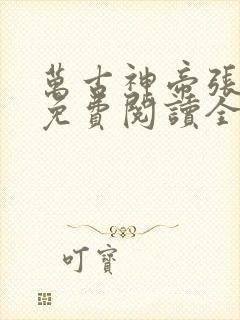 萬古神帝張
免費閱讀全
叮寶